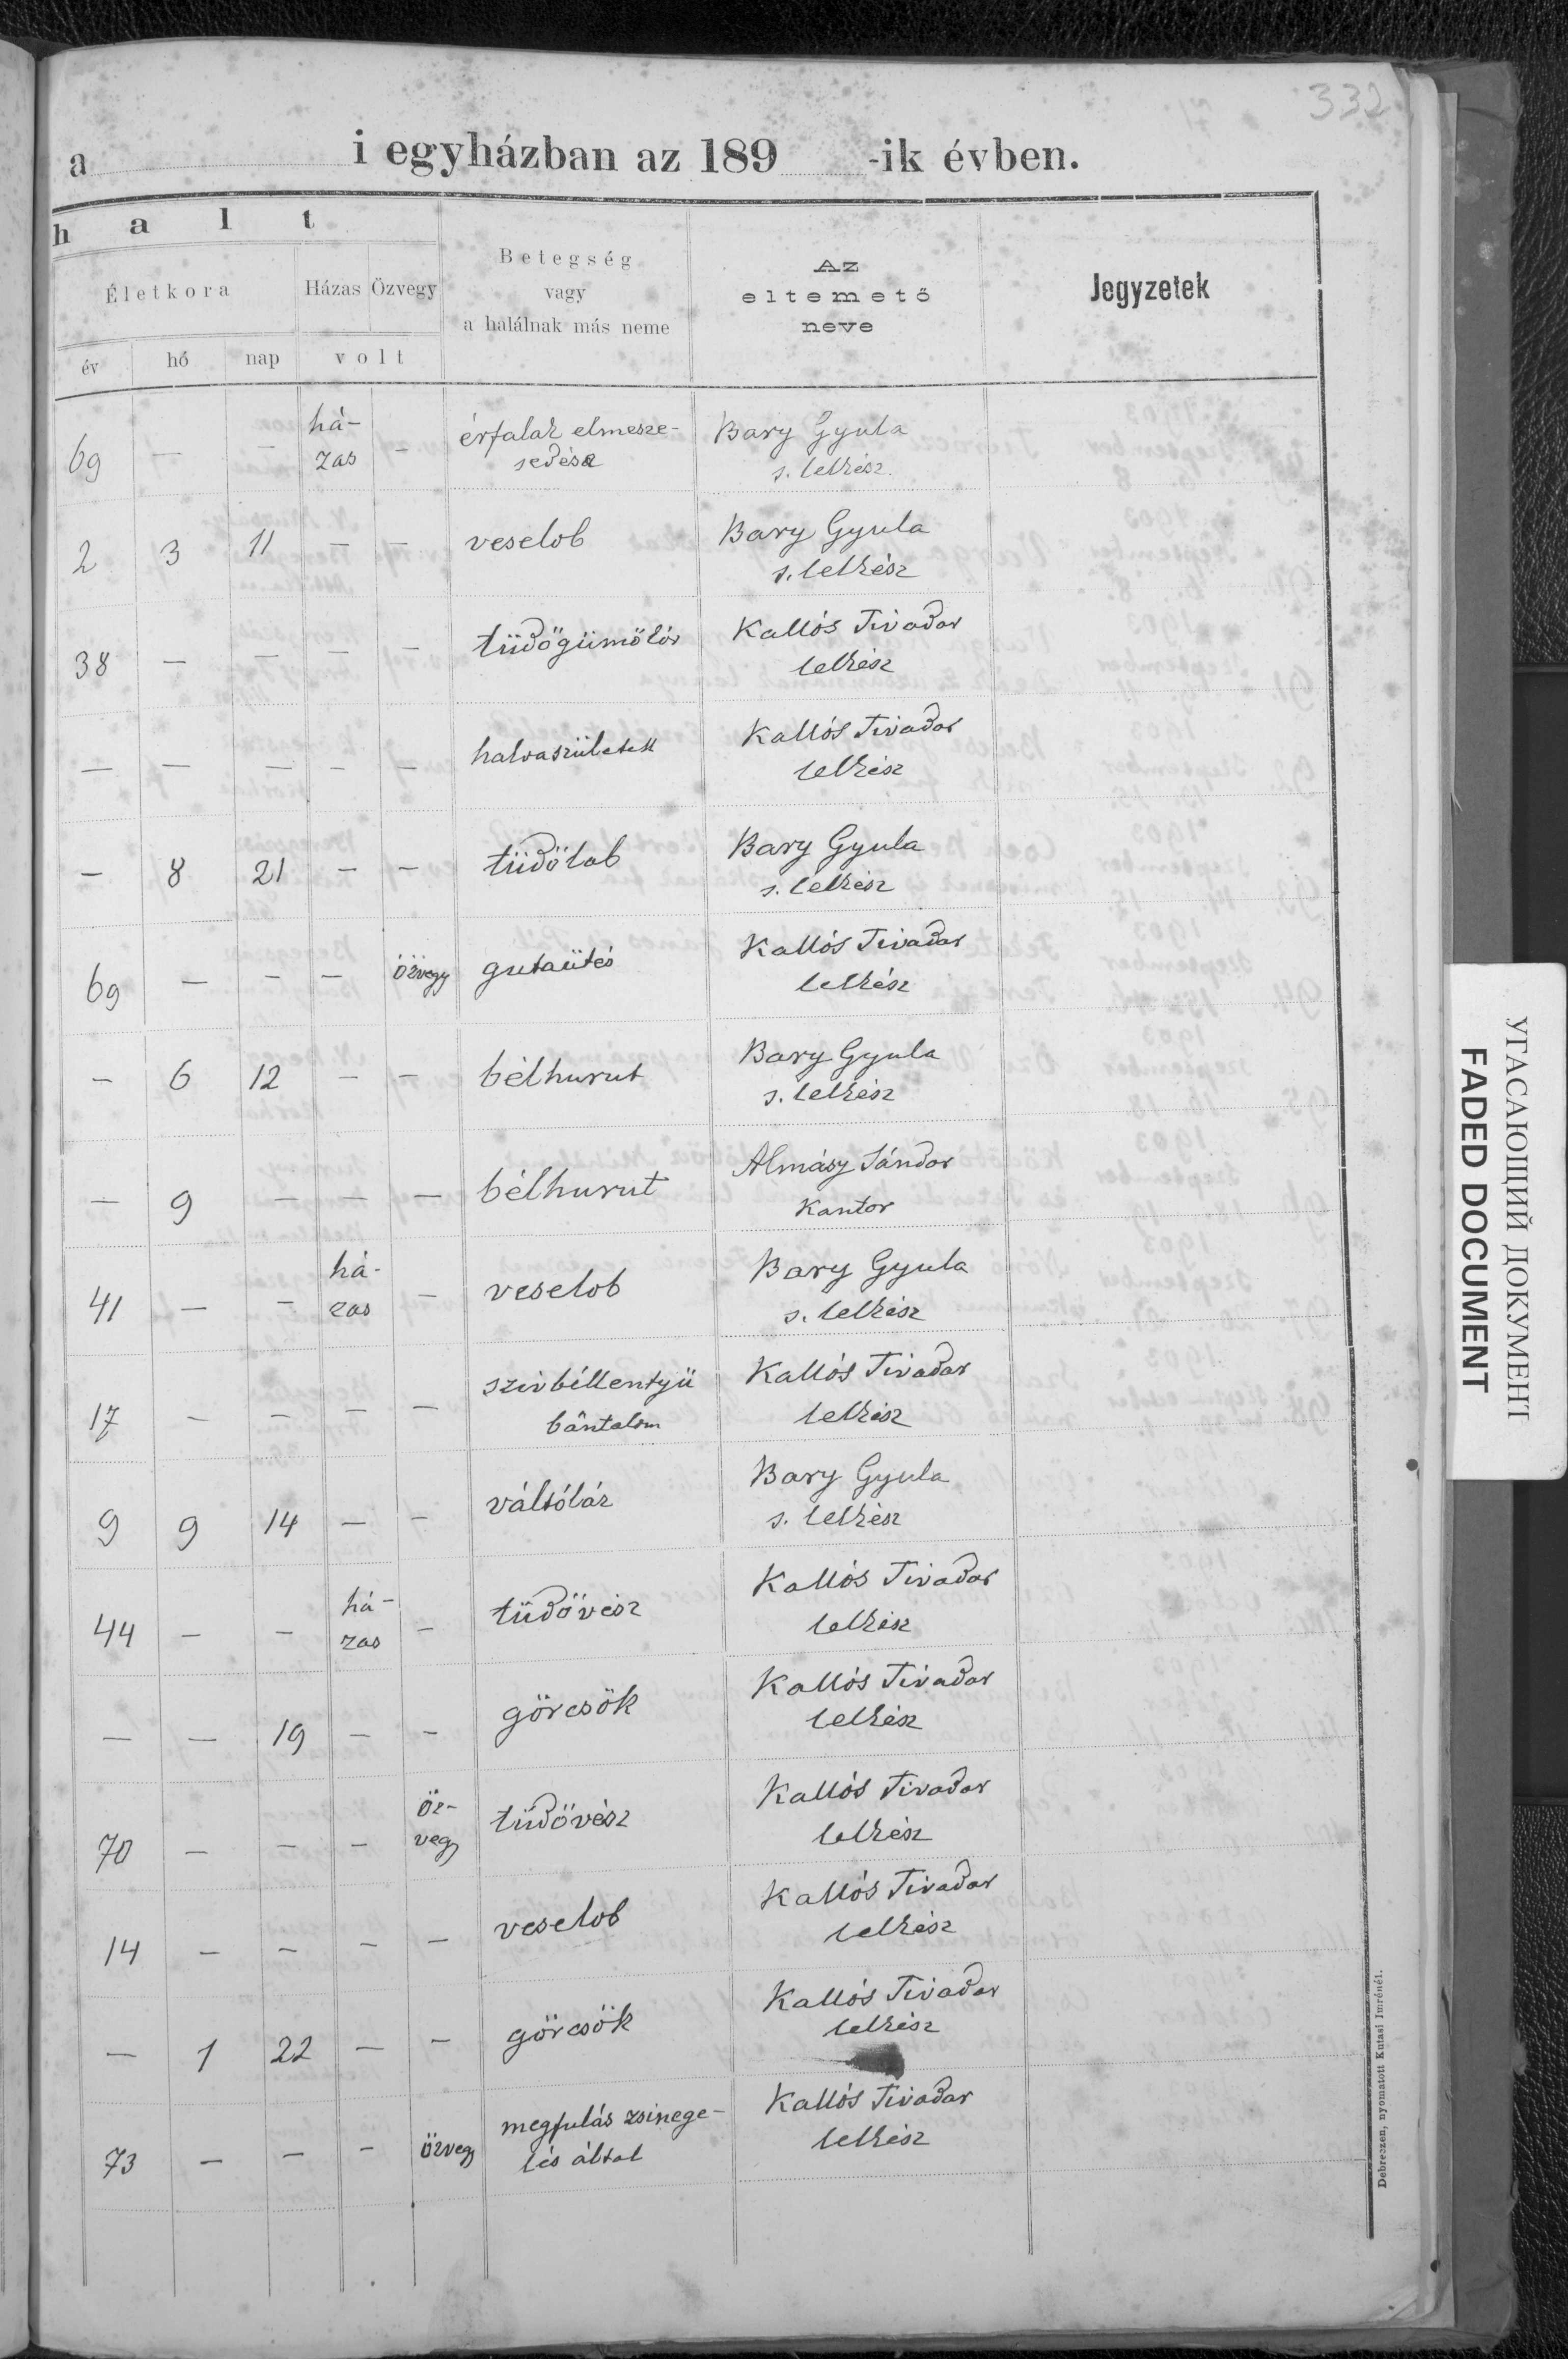 332
a i egyházban az 189 -ik évben.
h a l t
Életkora Házas Özvegy Betegség vagy a halálnak más neme Az eltemető neve Jegyzetek
év hó nap volt
69 — — há- — érfalak elmesze- Bary Gyula
zas sedése s. lelkész
2 3 11 — — veselob Bary Gyula
s. lelkész
38 — — — — tüdőgümőkór Kallós Tivadar
lelkész
— — — — — halvaszületett Kallós Tivadar
lelkész
— 8 21 — — tüdőlob Bary Gyula
s. lelkész
69 — — — özvegy gutaütés Kallós Tivadar
lelkész
— 6 12 — — bélhurut Bary Gyula
s. lelkész
— 9 — — — bélhurut Almásy Sándor
Kantor
41 — — há- — veselob Bary Gyula
zas s. lelkész
17 — — — — szivbillentyü Kallós Tivadar
bántalom lelkész
9 9 14 — — váltóláz Bary Gyula
s. lelkész
44 — — há- — tüdővész Kallós Tivadar
zas lelkész
— — 19 — — görcsök Kallós Tivadar
lelkész
70 — — — öz- tüdővész Kallós Tivadar
vegy lelkész
14 — — — — veselob Kallós Tivadar
lelkész
— 1 22 — — görcsök Kallós Tivadar
lelkész
73 — — — özvegy megfulás zsinege- Kallós Tivadar
lés által lelkész
Debreczen, nyomatott Kutasi Imrénél.
УГАСАЮЩИЙ ДОКУМЕНТ
FADED DOCUMENT